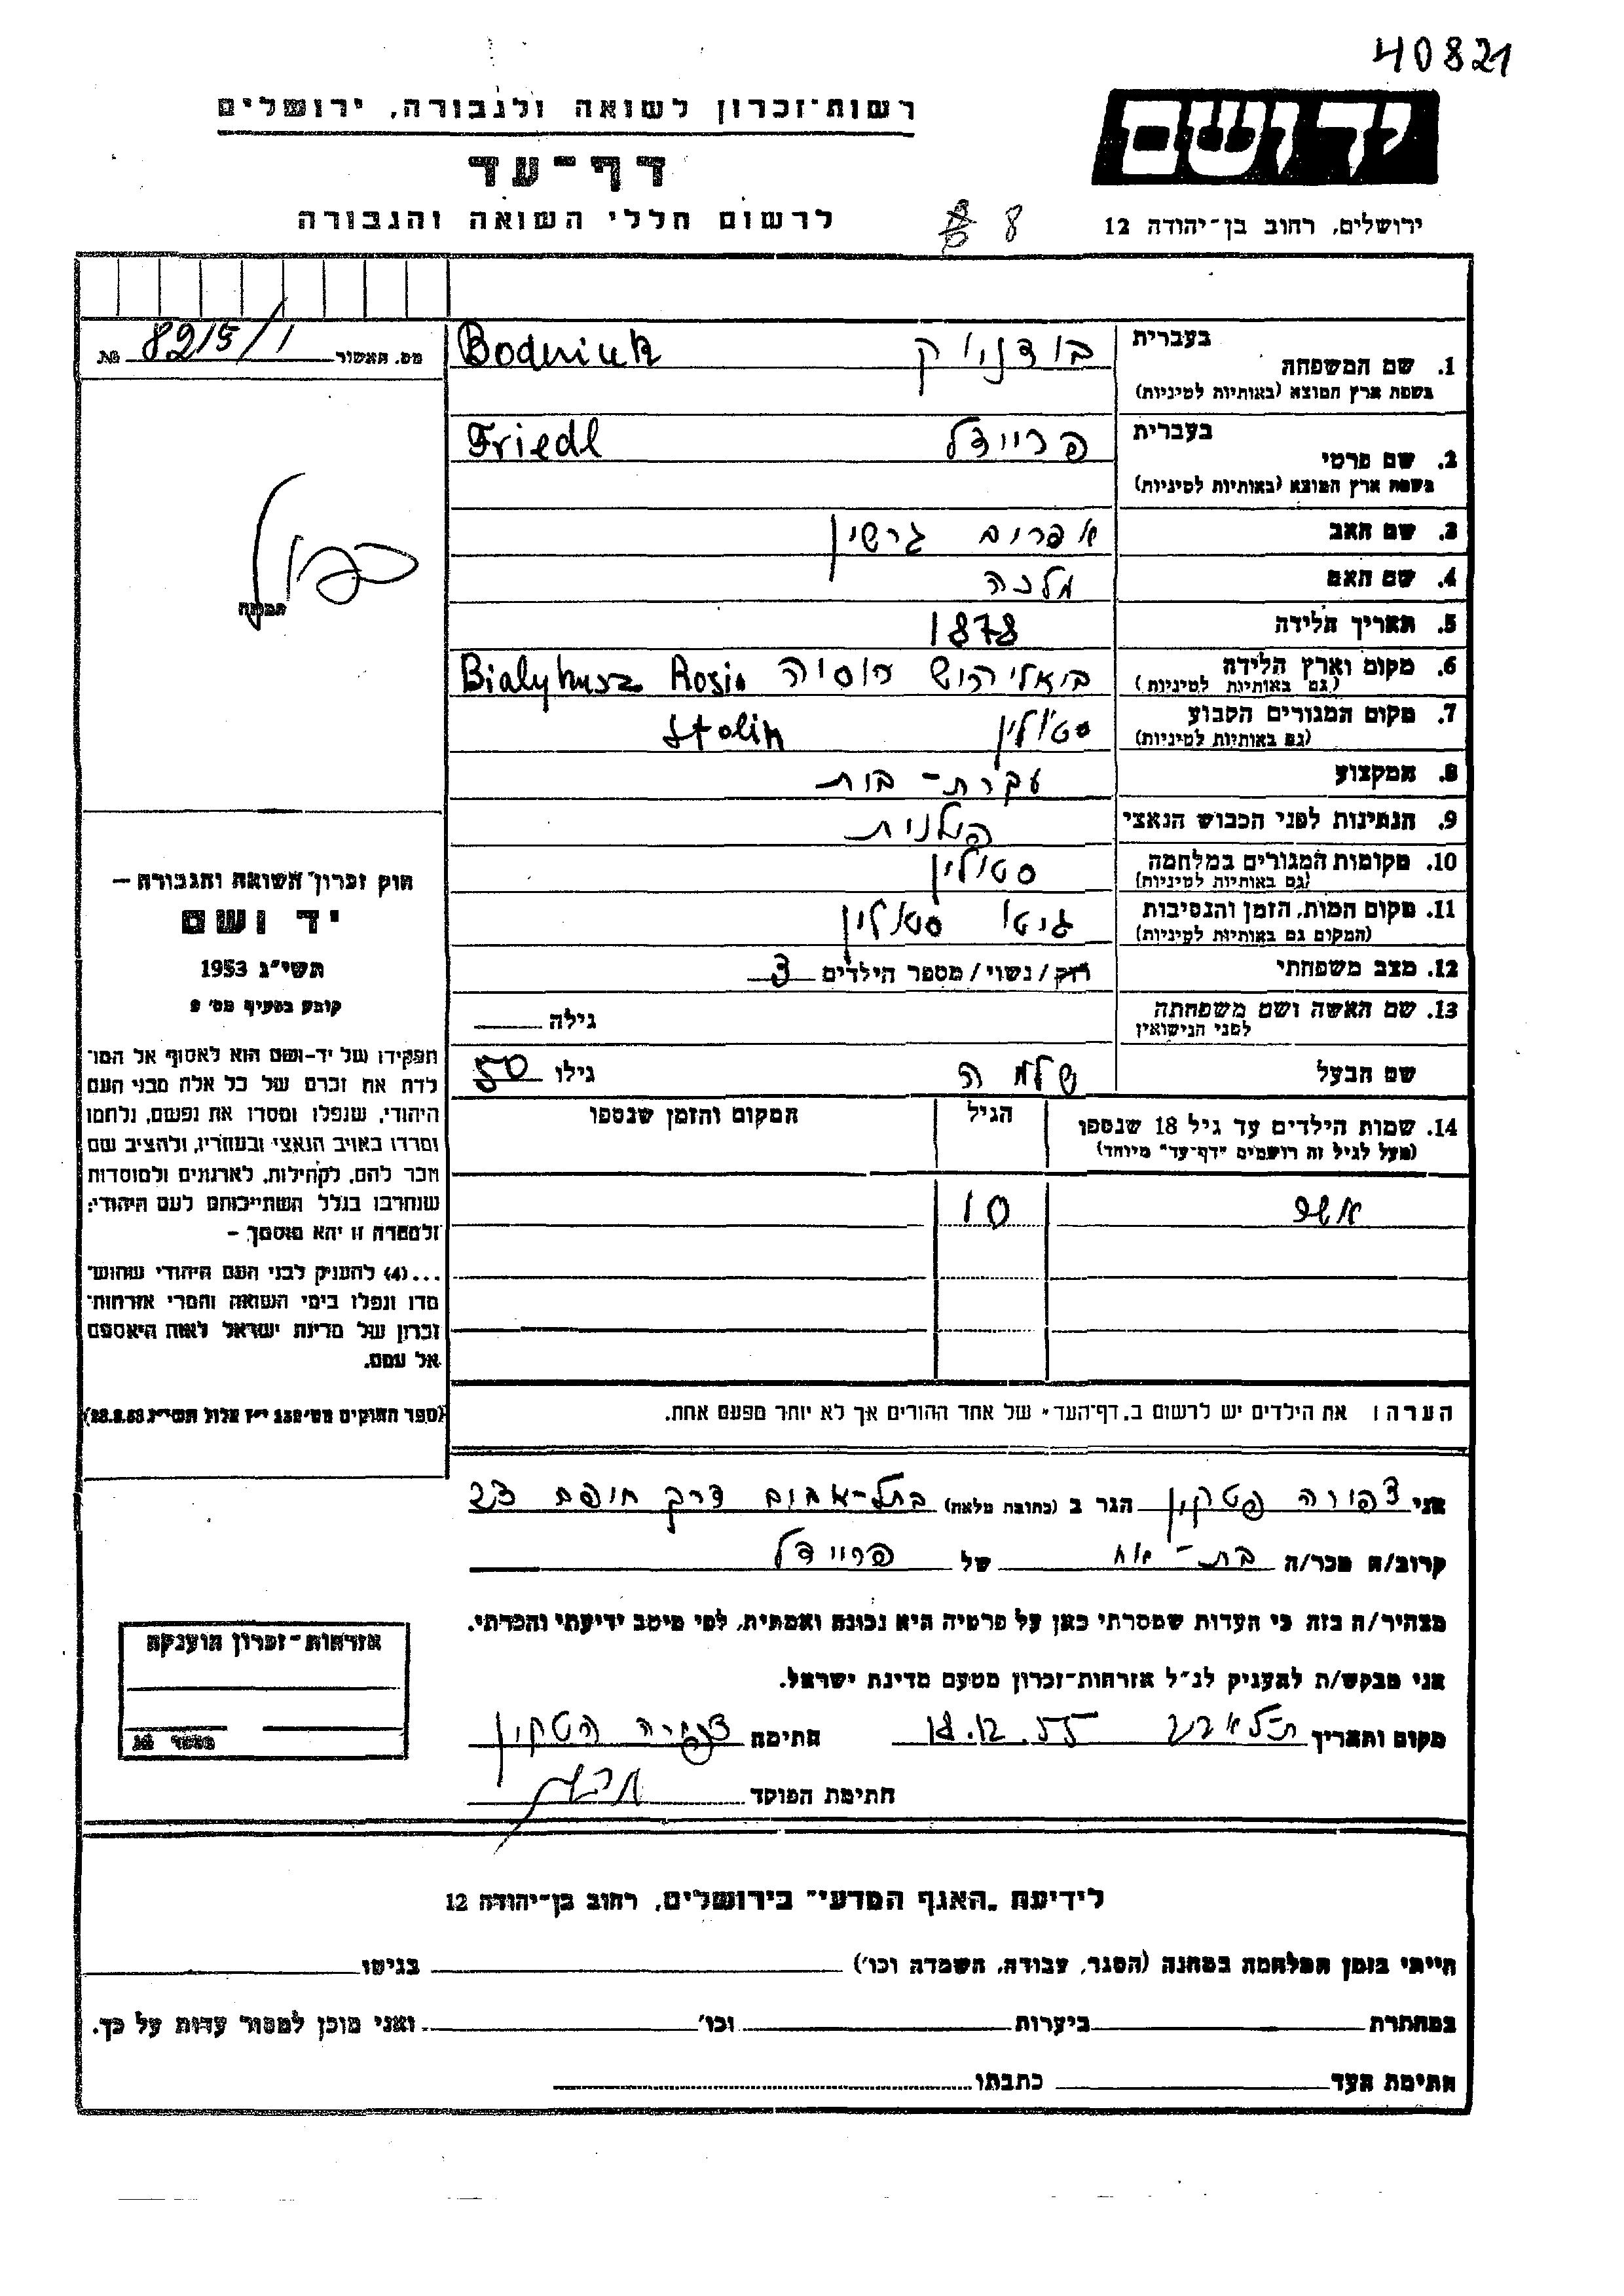 40821
רשות־זכרון לשואה ולגבורה, ירושלים
יד ושם
דף־עד
לרשום חללי השואה והגבורה
8
ירושלים, רחוב בן־יהודה 12
מס. תאשור 8215/1 №
1. שם המשפחה
בעברית
בודניוק
Bodniuk
בשפת ארץ המוצא (באותיות לטיניות)
2. שם פרטי
בעברית
פריידל
Friedl
בשפת ארץ המוצא (באותיות לטיניות)
3. שם האב
אפרים גרשון
4. שם האם
מלכה
5. תאריך הלידה
1878
6. מקום וארץ הלידה
(גם באותיות לטיניות)
רוסיה
Rosia
7. מקום המגורים הקבוע
(גם באותיות לטיניות)
סטולין Stolin
8. המקצוע
עקרת־בית
9. הנתינות לפני הכבוש הנאצי
פולנית
10. מקומות המגורים במלחמה
(גם באותיות לטיניות)
סטולין
11. מקום המות, הזמן והנסיבות
(המקום גם באותיות לטיניות)
גיטו סטולין
12. מצב משפחתי
רוק/נשוי/מספר הילדים 3
13. שם האשה ושם משפחתה
לפני הנישואין
גילה
שם הבעל
שלמה
גילו 50
14. שמות הילדים עד גיל 18 שנספו
(מעל לגיל זה רושמים "דף־עד" מיוחד)
הגיל
המקום והזמן שנספו
אשר 10
הערה: את הילדים יש לרשום ב"דף־העד" של אחד ההורים אך לא יותר מפעם אחת.
תמונה
חוק זכרון השואה והגבורה —
יד ושם
תשי"ג 1953
קובע בסעיף מס' 2
תפקידו של יד-ושם הוא לאסוף אל המו־
לדת את זכרם של כל אלה מבני העם
היהודי, שנפלו ומסרו את נפשם, נלחמו
ומרדו באויב הנאצי ובעוזריו, ולהציב שם
וזכר להם, לקהילות, לארגונים ולמוסדות
שנחרבו בגלל השתייכותם לעם היהודי;
ולמטרה זו יהא מוסמך —
...(4) להעניק לבני העם היהודי שהוש־
מדו ונפלו בימי השואה והמרי אזרחות־
זכרון של מדינת ישראל לאות היאספם
אל עמם.
(ספר החוקים מס' 132 י"ז אלול תשי"ג 28.8.53)
אני צפורה פטקין הגר ב (כתובת מלאה) 23
קרוב/ה מכר/ה בת-אח של פריידל
מצהיר/ה בזה כי העדות שמסרתי כאן על פרטיה היא נכונה ואמתית, לפי מיטב ידיעתי והכרתי.
אני מבקש/ת להעניק לנ"ל אזרחות־זכרון מטעם מדינת ישראל.
מקום ותאריך ת"לאביב 18.12.55 חתימה צפורה פטקין
חתימת הפוקד
אזרחות־זכרון הוענקה
מספר №
לידיעת "האגף המדעי" בירושלים, רחוב בן־יהודה 12
הייתי בזמן המלחמה במחנה (הסגר, עבודה, השמדה וכו') בגיטו
במחתרת ביערות וכו' ואני מוכן למסור עדות על כך.
חתימת העד כתבתו